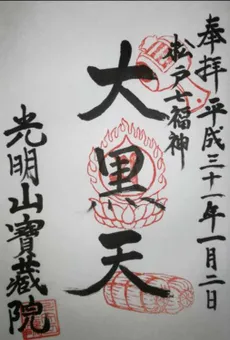 奉拝 平成三十一年一月二日
松戸七福神
大黒天
光明山寳蔵院